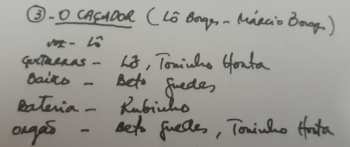 ③ - O CAÇADOR (Lô Borges - Márcio Borges)
voz - Lô
guitarras - Lô, Toninho Horta
Baixo - Beto Guedes
Bateria - Rubinho
orgão - Beto Guedes, Toninho Horta